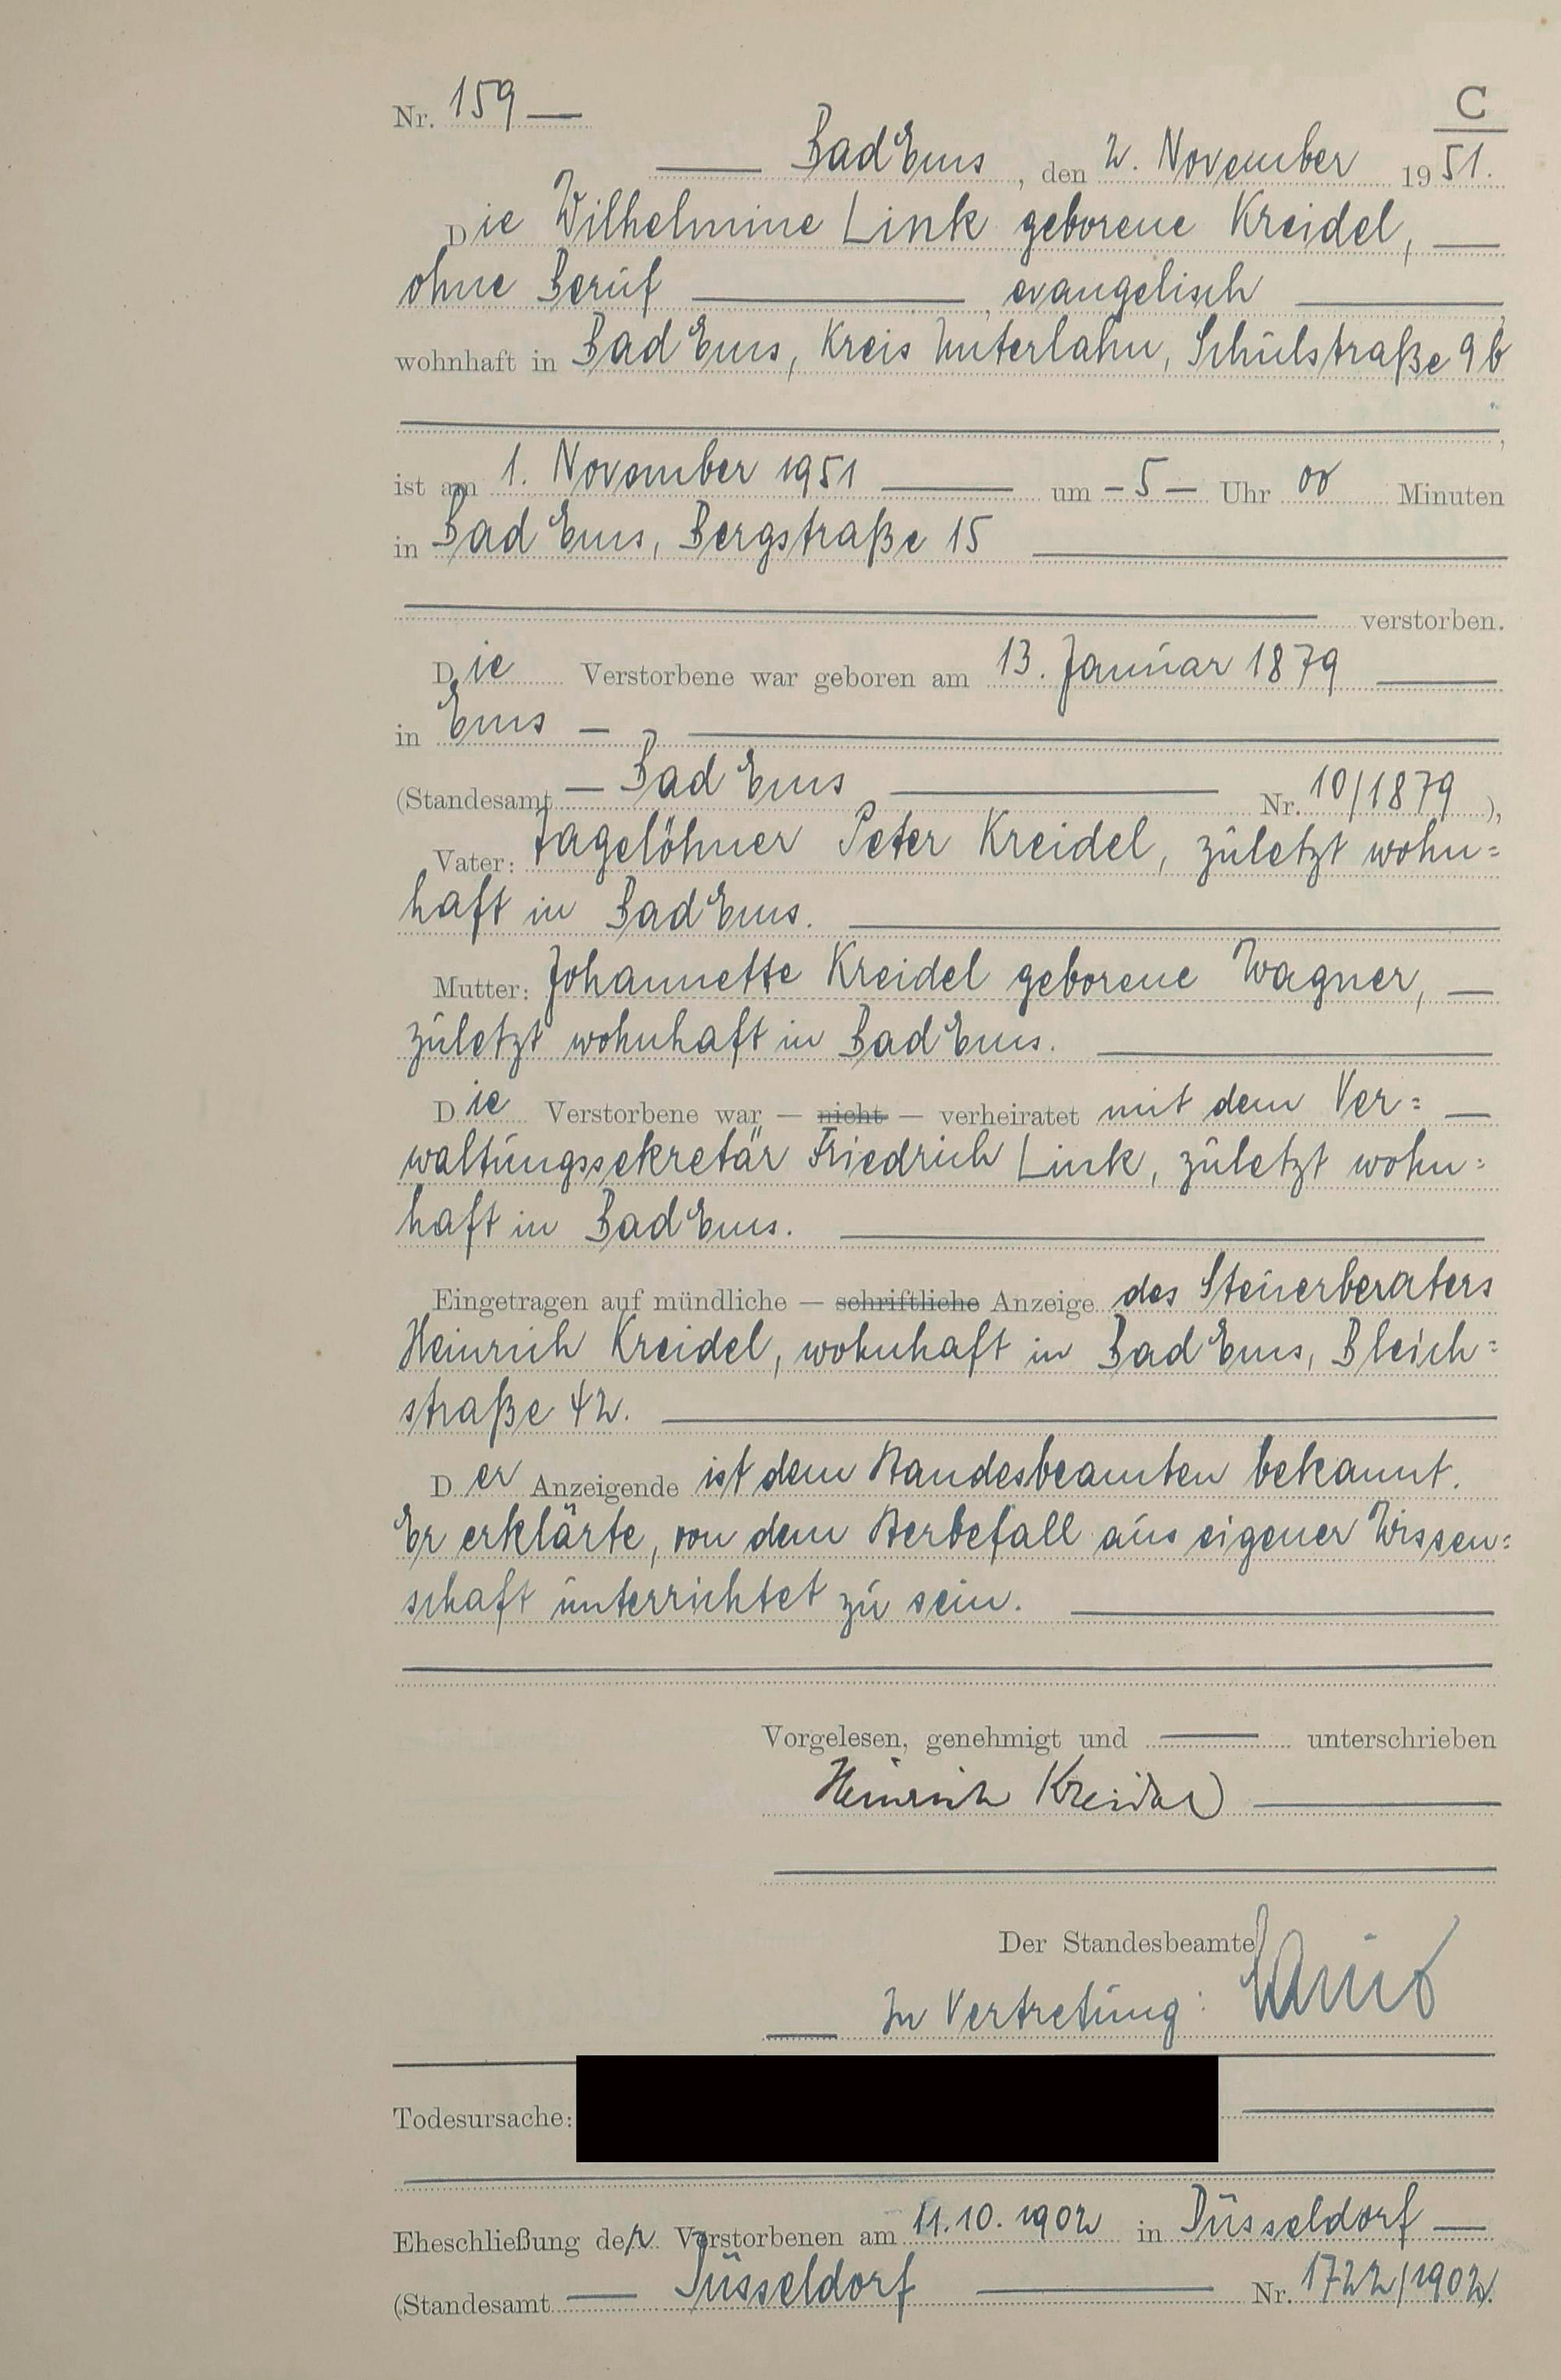 Nr. 159 —
C
Bad Ems, den 2. November 1951.
Die Wilhelmine Link geborene Kreidel,
ohne Beruf, evangelisch
wohnhaft in Bad Ems, Kreis Unterlahn, Schulstraße 9b
,
ist am 1. November 1951 um – 5 – Uhr 00 Minuten
in Bad Ems, Bergstraße 15
verstorben.
Die Verstorbene war geboren am 13. Januar 1879
in Ems –
(Standesamt – Bad Ems Nr. 10/1879),
Vater: Tagelöhner Peter Kreidel, zuletzt wohn=
haft in Bad Ems.
Mutter: Johannette Kreidel geborene Wagner,
zuletzt wohnhaft in Bad Ems.
Die Verstorbene war — nicht — verheiratet mit dem Ver=
waltungssekretär Friedrich Link, zuletzt wohn=
haft in Bad Ems.
Eingetragen auf mündliche — schriftliche Anzeige des Steuerberaters
Heinrich Kreidel, wohnhaft in Bad Ems, Bleich=
straße 42.
Der Anzeigende ist dem Standesbeamten bekannt.
Er erklärte, von dem Sterbefall aus eigener Wissen=
schaft unterrichtet zu sein.
Vorgelesen, genehmigt und unterschrieben
Heinrich Kreidel
Der Standesbeamte
In Vertretung:
Todesursache:
Eheschließung der Verstorbenen am 11.10.1902 in Düsseldorf
(Standesamt Düsseldorf Nr. 1722/1902).